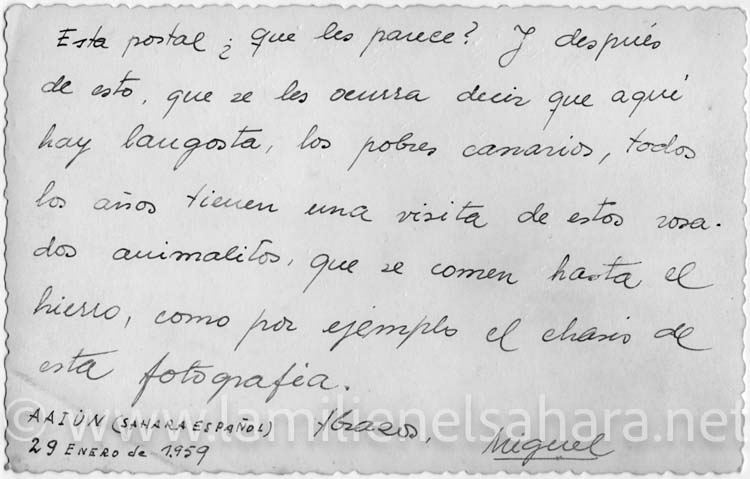 Esta postal ¿ que les parece? Y después
de esto, que se les ocurra decir que aquí
hay langosta, los pobres canarios, todos
los años tienen una visita de estos rosa-
dos animalitos, que se comen hasta el
hierro, como por ejemplo el chasis de
esta fotografía.
AAIÚN (SAHARA ESPAÑOL) Abrazos,
29 ENERO de 1.959 Miguel
© www.lamilienelsahara.net